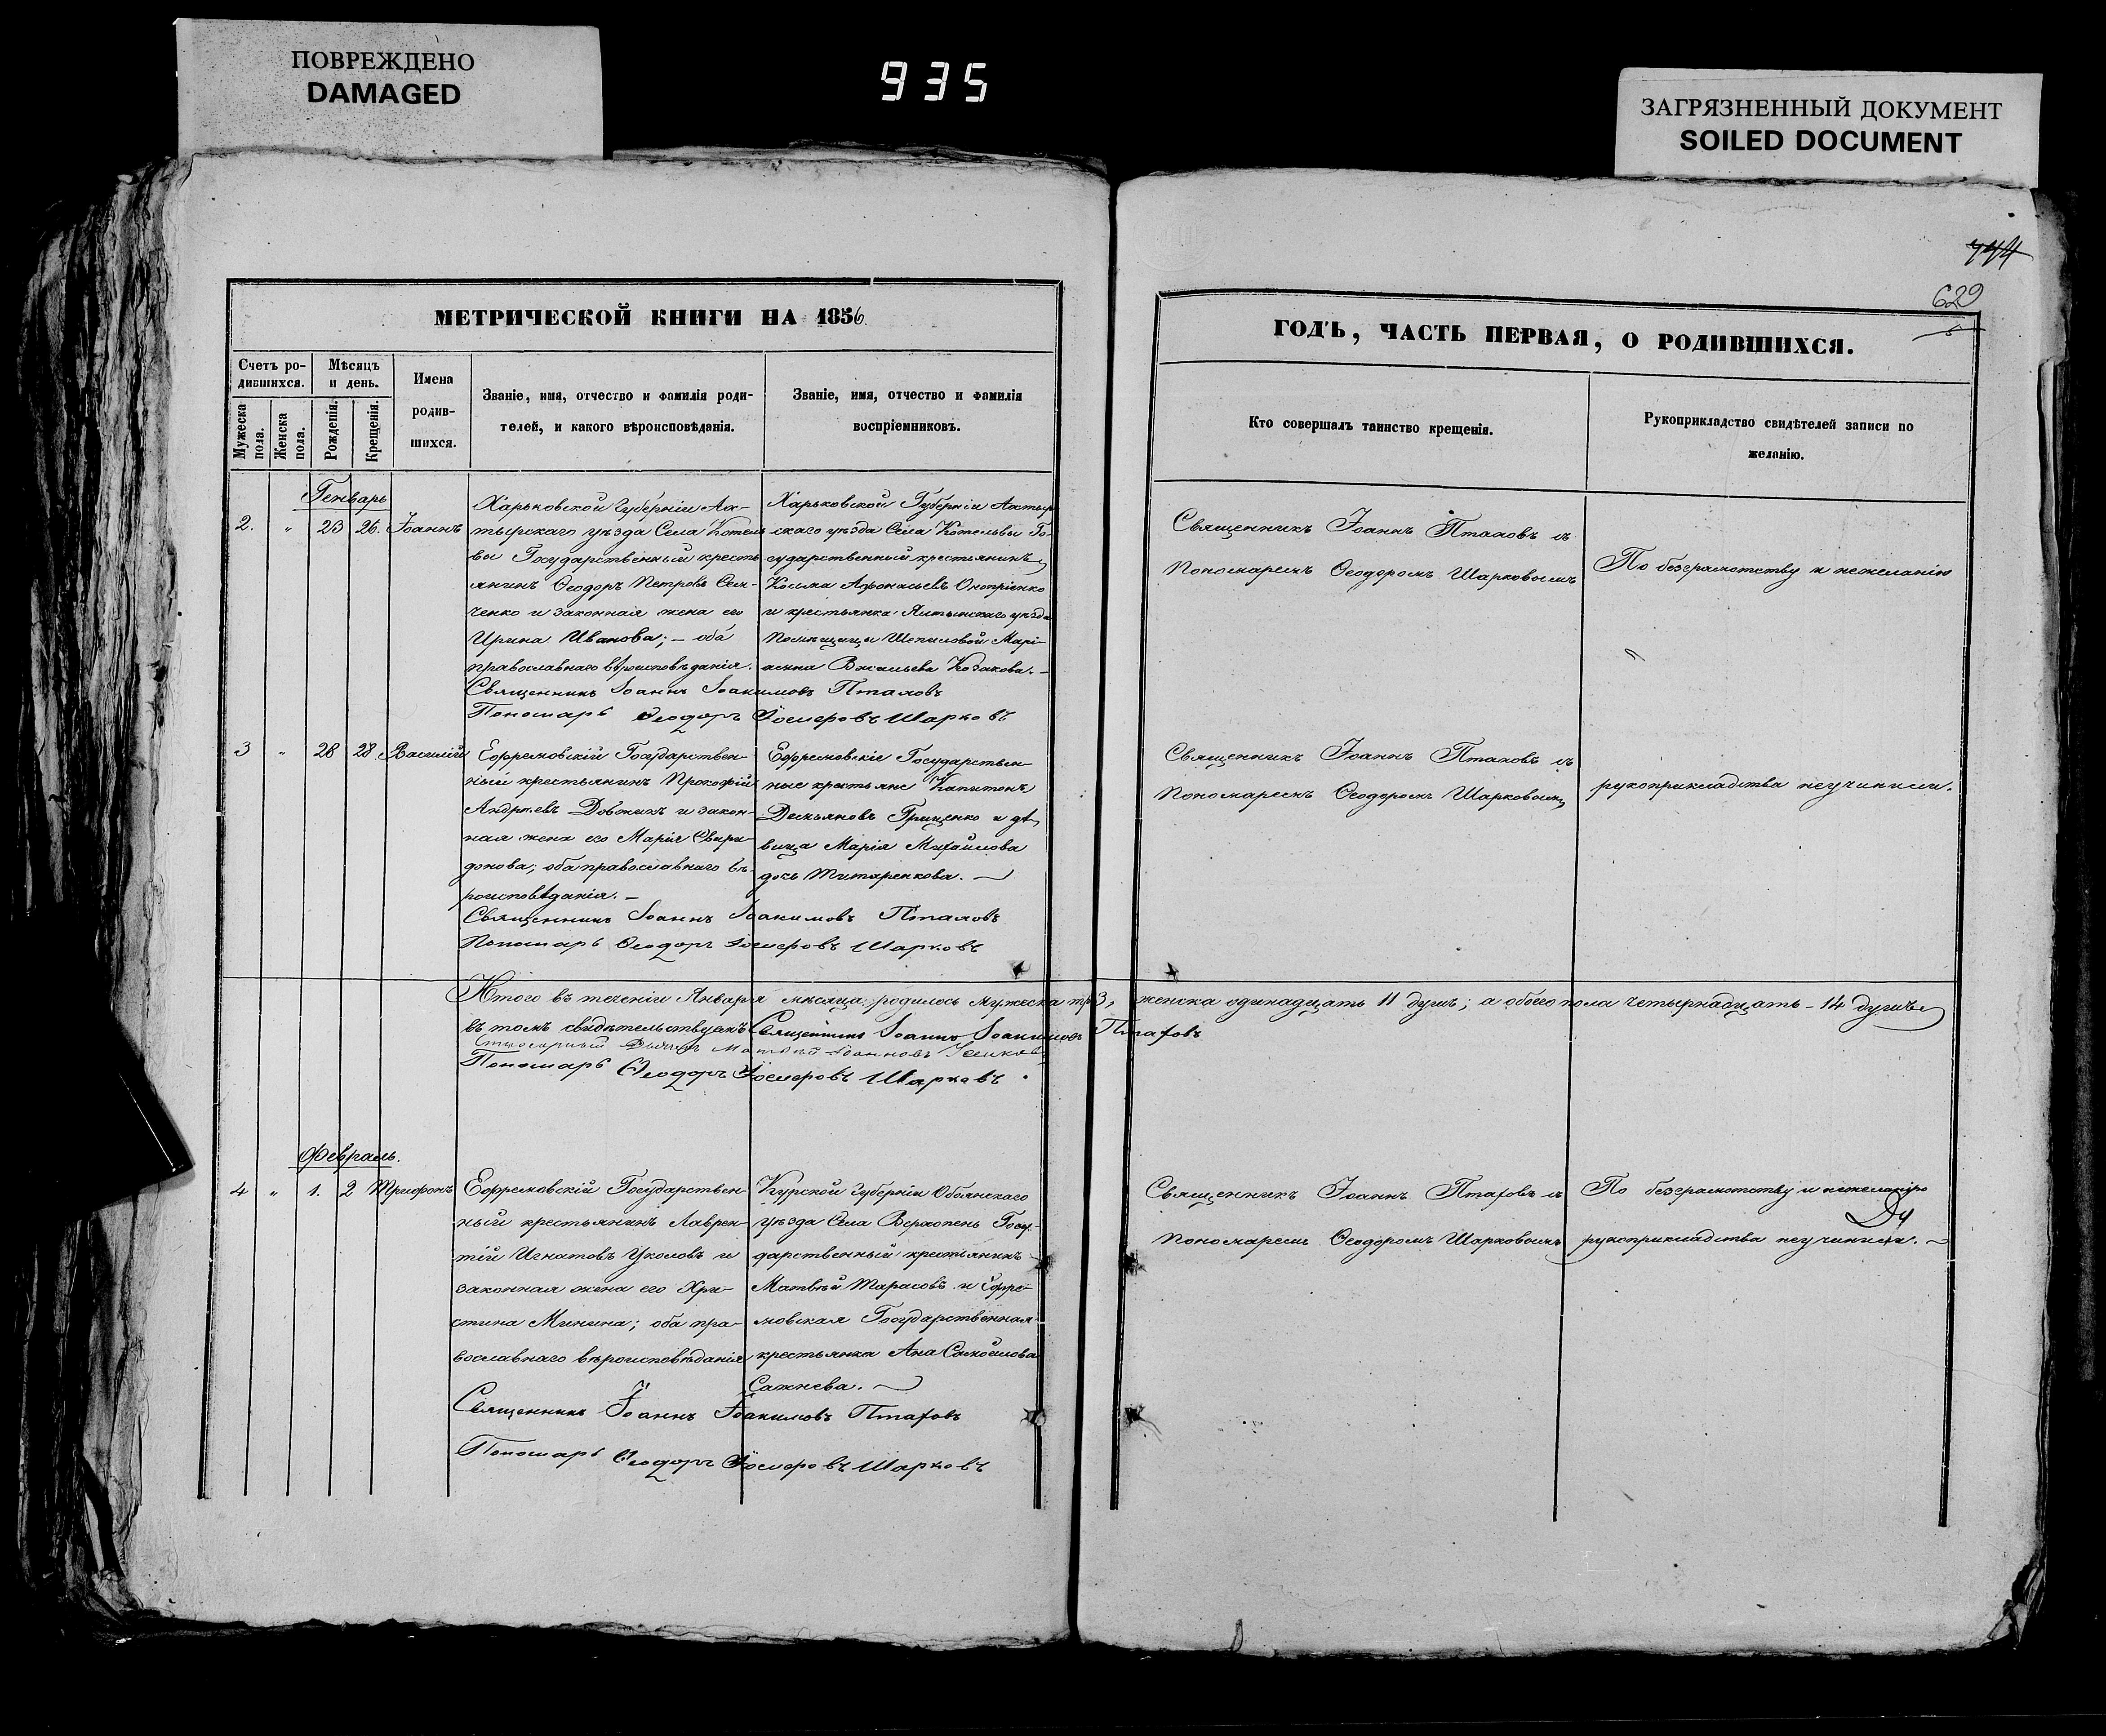 ПОВРЕЖДЕНО
DAMAGED
935
ЗАГРЯЗНЕННЫЙ ДОКУМЕНТ
SOILED DOCUMENT
744
629
МЕТРИЧЕСКОЙ КНИГИ НА 1856
Счетъ ро-
дившихся.
Мужеска
пола.
Женска
пола.
Мѣсяцъ
и день.
Рожденія.
Крещенія.
Имена
родив-
шихся.
Званіе, имя, отчество и фамилія роди-
телей, и какого вѣроисповѣданія.
Званіе, имя, отчество и фамилія
воспріемниковъ.
Генварь
2. " 23 26. Іоаннъ
Харьковской Губерніи Ах-
тырскаго уѣзда Села Котель
вы Государственный кресть
янинъ Ѳеодоръ Петровъ Сен-
ченко и законная жена его
Ирина Иванова; – оба
православнаго вѣроисповѣданія.
Харьковской Губерніи Ахтыр
скаго уѣзда Села Котельвы Го-
сударственный крестьянинъ
Косма Афонасьевъ Оноприенко
и крестьянка уѣзда
Помѣщицы Шепиловой Марі-
анна Васильева Козакова. –
Священникъ Іоаннъ Іоакимовъ Птаховъ
Пономарь Ѳеодоръ Шарковъ
3 " 28 28. Василій
Ефремовскій Государствен-
ный крестьянинъ Прокофій
Андреевъ Довжикъ и закон-
ная жена его Марія Свири-
донова; оба православнаго вѣ-
роисповѣданія. –
Ефремовскіе Государствен
ные крестьяне Капитонъ
Демьяновъ Грищенко и дѣ
вица Марія Михайлова
дочь Титаренкова. –
Священникъ Іоаннъ Іоакимовъ Птаховъ
Пономарь Ѳеодоръ Шарковъ
Итого въ теченіи Января мѣсяца: родилось мужеска три 3, женска одинадцать 11 душъ; а обоего пола четырнадцать – 14 душъ
въ томъ свидѣтельствуемъ Священникъ Іоаннъ Іоакимовъ Птаховъ
Матвѣй Іоанновъ
Пономарь Ѳеодоръ Шарковъ.
Февраль.
4 " 1. 2 Трифонъ
Ефремовскій Государствен-
ный крестьянинъ Лаврен-
тій Игнатовъ Уколовъ и
законная жена его Хри-
стина Минина; оба пра-
вославнаго вѣроисповѣданія
Курской Губерніи Обоянскаго
уѣзда Села Верхопень Госу-
дарственный крестьянинъ
Матвѣй Тарасовъ и Ефре-
мовская Государственная
крестьянка Ана Самойлова
Сажнева. –
Священникъ Іоаннъ Іоакимовъ Птаховъ
Пономарь Ѳеодоръ Шарковъ
ГОДЪ, ЧАСТЬ ПЕРВАЯ, О РОДИВШИХСЯ.
Кто совершалъ таинство крещенія.
Рукоприкладство свидѣтелей записи по
желанію.
Священникъ Іоаннъ Птаховъ съ
Пономаремъ Ѳеодоромъ Шарковымъ
По безграмотству и нежеланію
Священникъ Іоаннъ Птаховъ съ
Пономаремъ Ѳеодоромъ Шарковымъ
рукоприкладства неучинили.
Священникъ Іоаннъ Птаховъ съ
Пономаремъ Ѳеодоромъ Шарковымъ
По безграмотству и нежеланію
рукоприкладства неучинили. –